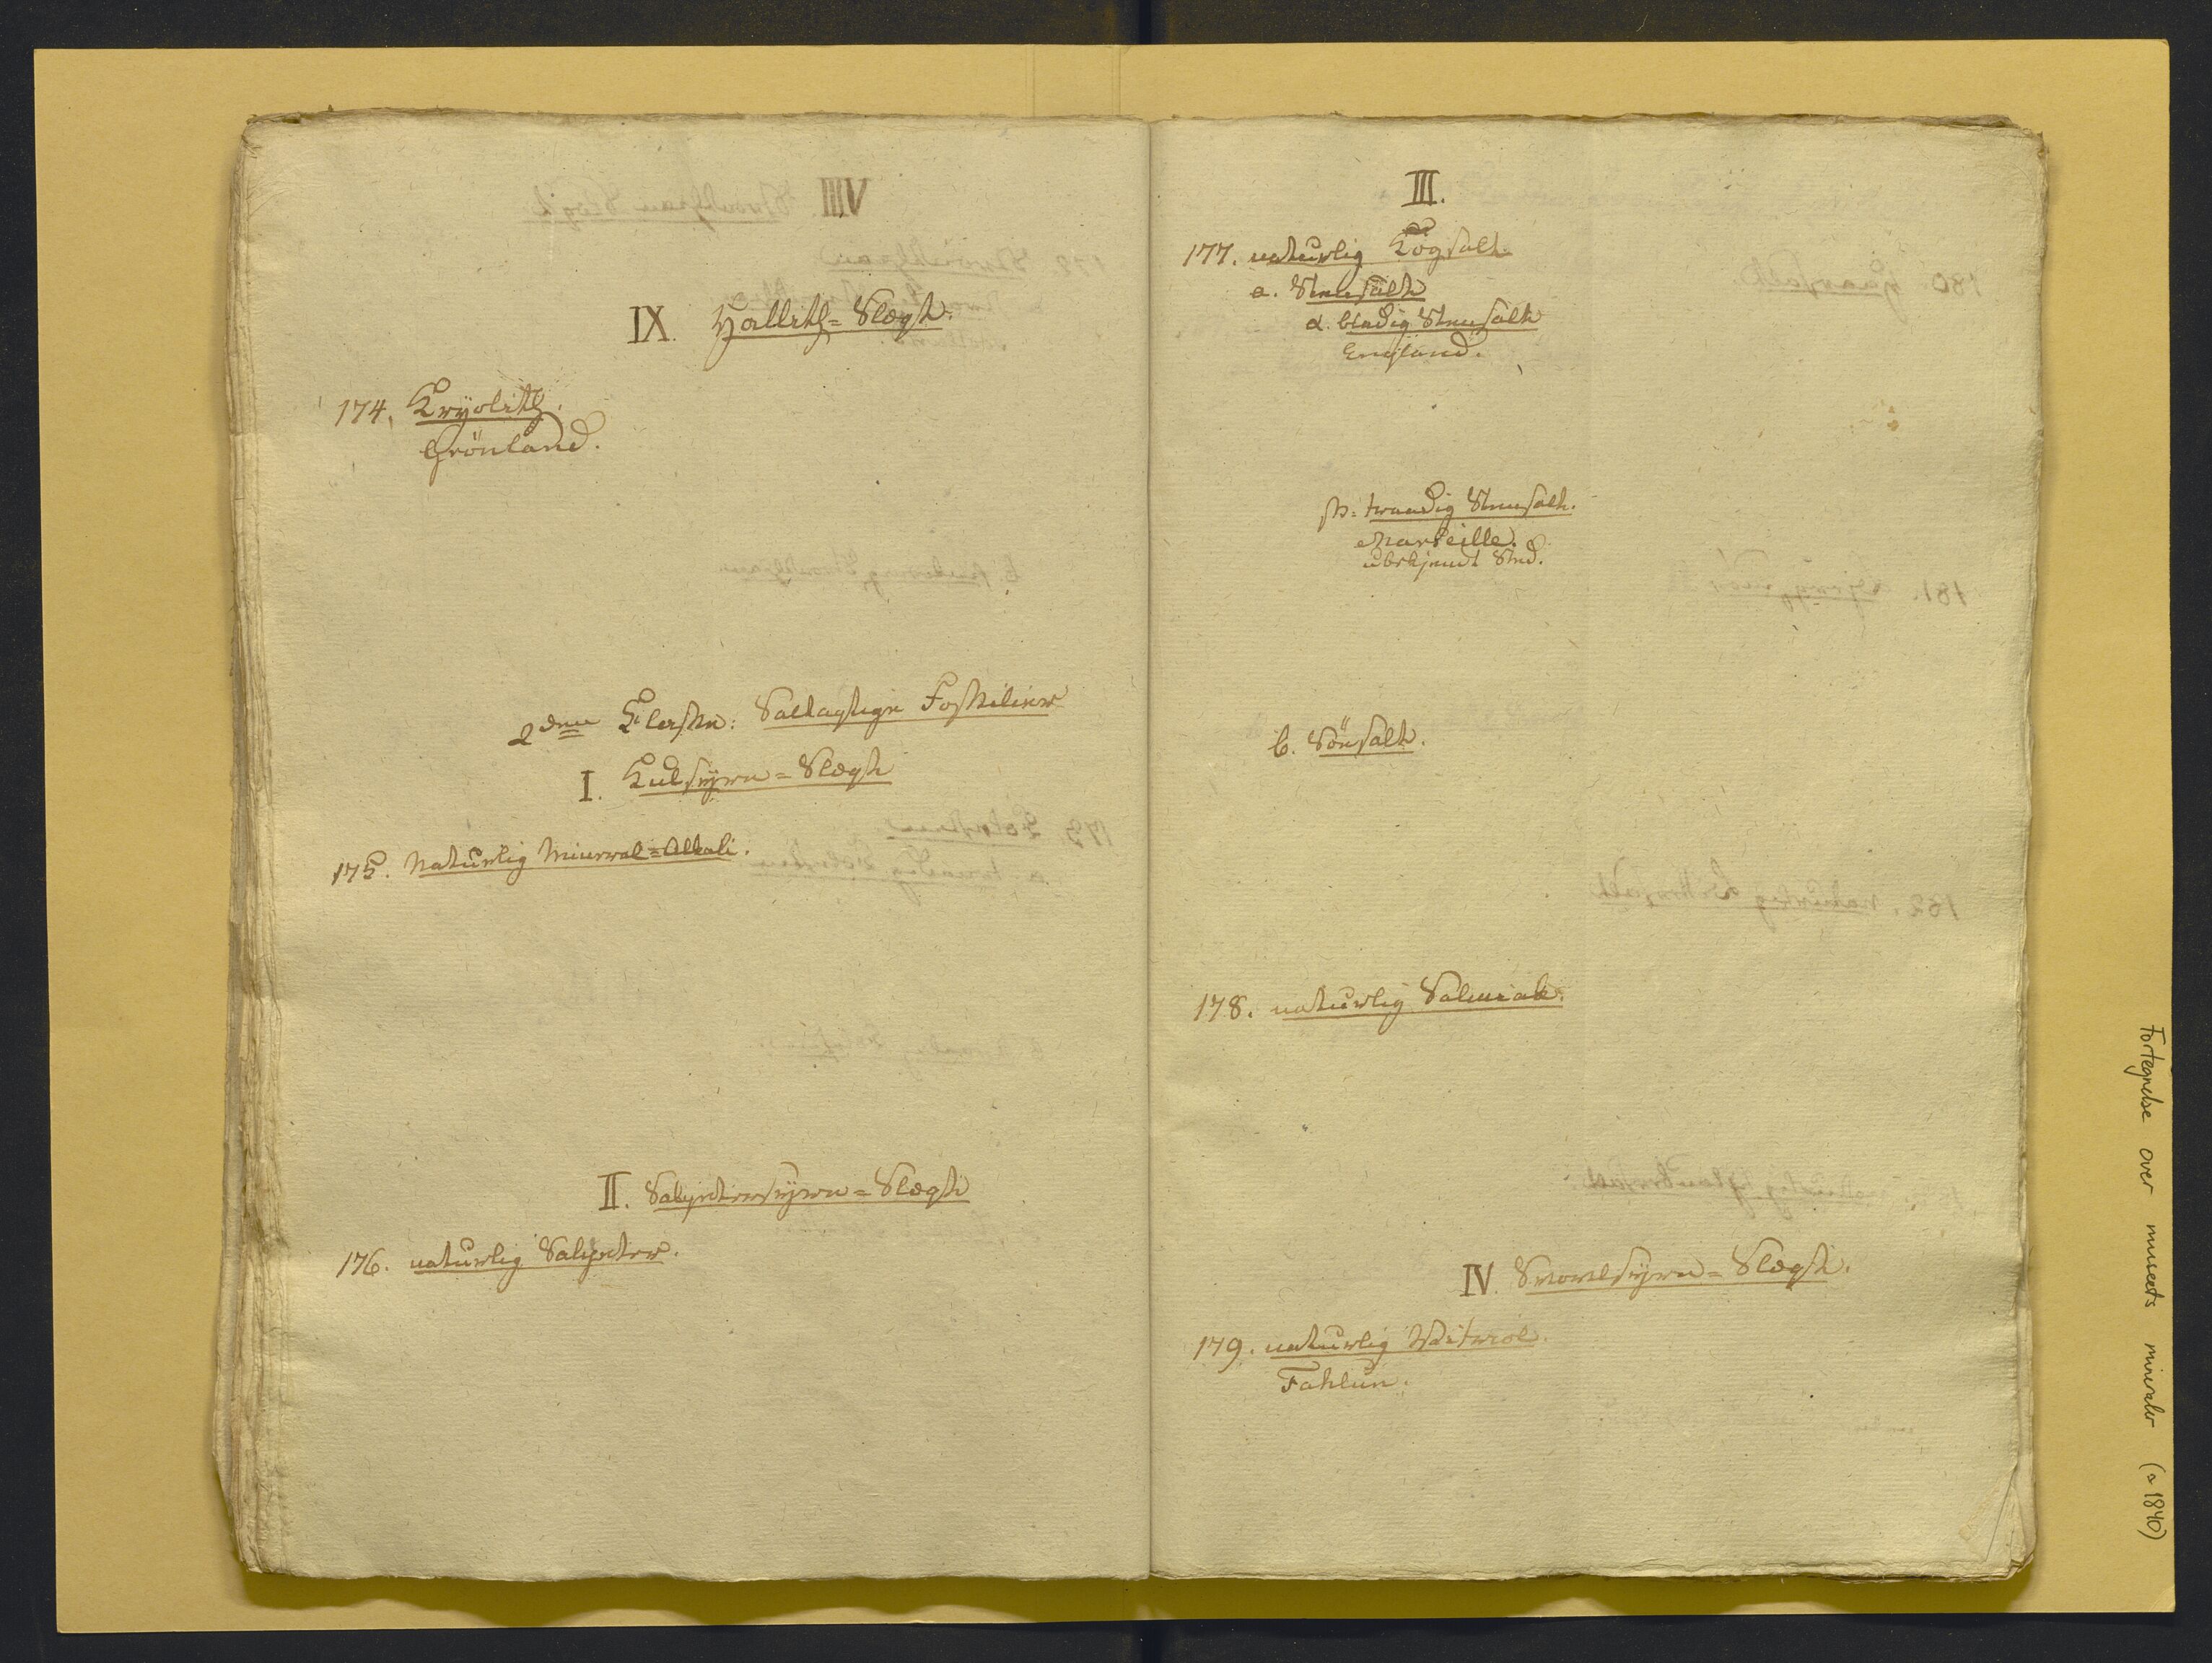 IX. Hallith=Slægt.
174. Kryolith.
Grönland.
2den Classe: Saltagtige Fossilier
I. Kulsyre=Slægt
175. Naturlig Mineral=Alkali.
II. Salpetersyre=Slægt
176. naturlig Salpeter.
III.
177. naturlig Kogsalt.
a. Steensalt
α. bladig Steensalt
England.
β. traadig Steensalt.
Marseille.
ubekjendt Sted.
b. Söesalt.
178. naturlig Salmiak.
IV. Svovelsyre=Slægt.
179. naturlig Vitriol.
Fahlun.
Fortegnelse over museets mineraler (a 1840)